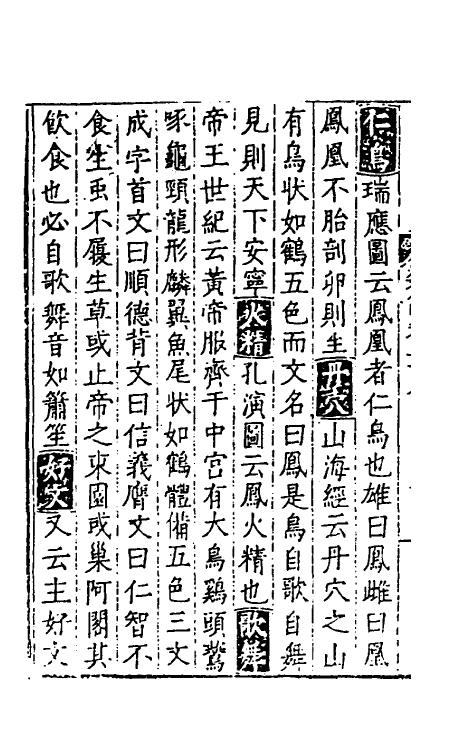 仁鳥瑞應圖云鳳凰者仁鳥也雄曰鳳雌曰凰
鳳凰不胎剖卵則生丹穴山海經云丹穴之山
有鳥状如鶴五色而文名曰鳳是鳥自歌自舞
見則天下安寧火精孔演圖云鳳火精也歌舞
帝王世紀云黃帝服齊于中宮有大鳥鷄頭鷰
啄龜頸龍形麟翼魚尾状如鶴體備五色三文
成字首文曰順德背文曰信義膺文曰仁智不
食生䖝不履生草或止帝之東園或巢阿閣其
飲食也必自歌舞音如簫笙好文又云主好文